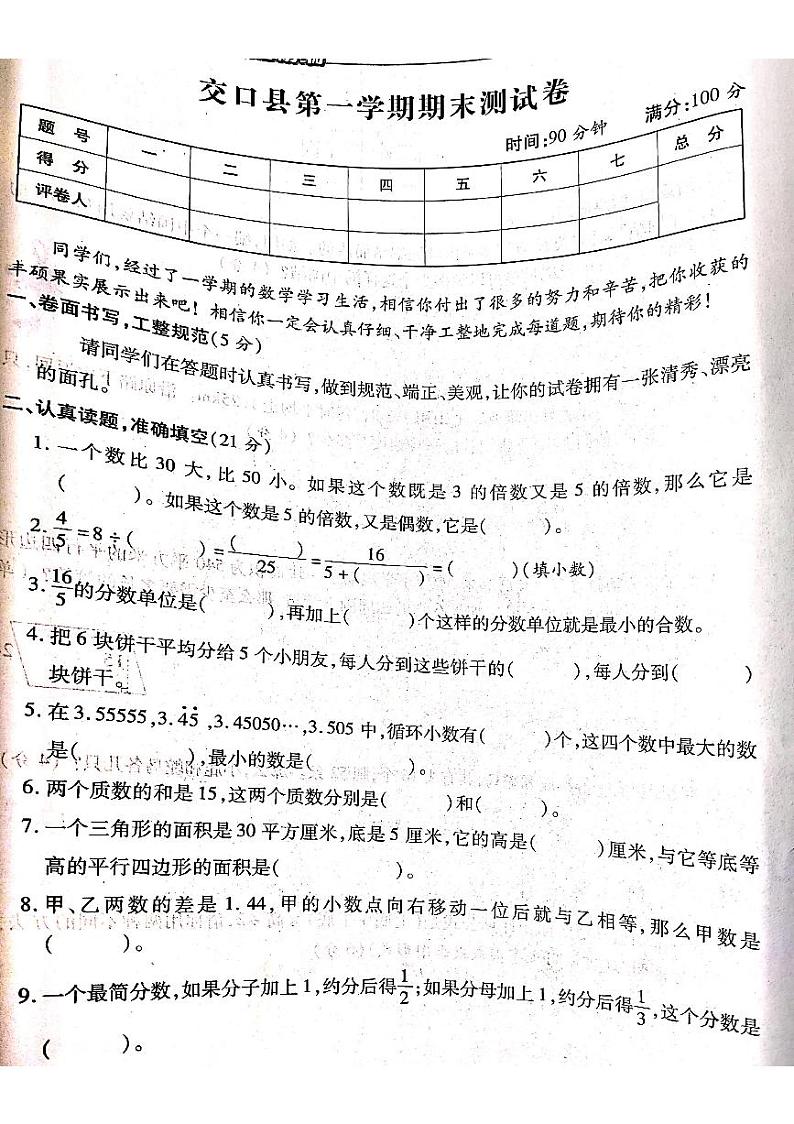 交口县第一学期期末测试卷
时间:90分钟 满分:100分
题 号 一 二 三 四 五 六 七 总 分
得 分
评卷人
同学们,经过了一学期的数学学习生活,相信你付出了很多的努力和辛苦,把你收获的
丰硕果实展示出来吧!相信你一定会认真仔细、干净工整地完成每道题,期待你的精彩!
一、卷面书写,工整规范(5分)
请同学们在答题时认真书写,做到规范、端正、美观,让你的试卷拥有一张清秀、漂亮
的面孔。
二、认真读题,准确填空(21分)
1. 一个数比30大,比50小。如果这个数既是3的倍数又是5的倍数,那么它是
( )。如果这个数是5的倍数,又是偶数,它是( )。
2. 4/5=8÷( )=( )/25=16/(5+( ))=( )(填小数)
3. 16/5的分数单位是( ),再加上( )个这样的分数单位就是最小的合数。
4. 把6块饼干平均分给5个小朋友,每人分到这些饼干的( ),每人分到( )
块饼干。
5. 在3.55555,3.4̇5̇,3.45050…,3.505中,循环小数有( )个,这四个数中最大的数
是( ),最小的数是( )。
6. 两个质数的和是15,这两个质数分别是( )和( )。
7. 一个三角形的面积是30平方厘米,底是5厘米,它的高是( )厘米,与它等底等
高的平行四边形的面积是( )。
8. 甲、乙两数的差是1.44,甲的小数点向右移动一位后就与乙相等,那么甲数是
( )。
9. 一个最简分数,如果分子加上1,约分后得1/2;如果分母加上1,约分后得1/3,这个分数是
( )。